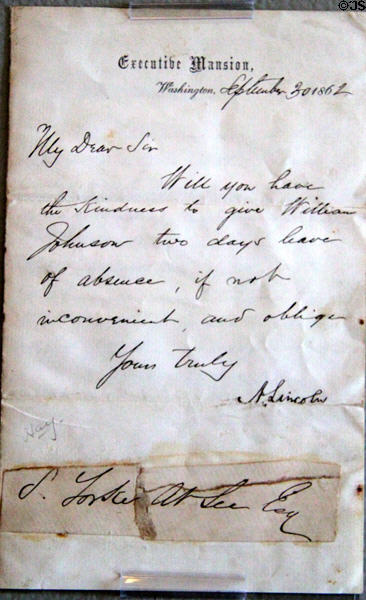 ©JS
Executive Mansion,
Washington, September 30 1862
My Dear Sir
Will you have
the kindness to give William
Johnson two days leave
of absence, if not
inconvenient, and oblige
Yours truly
A. Lincoln
Esq